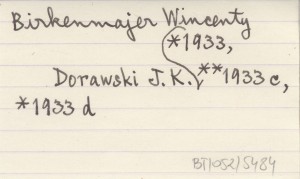 Birkenmajer Wincenty
*1933,
Dorawski J.K. **1933 c,
*1933 d
BT/052/5484